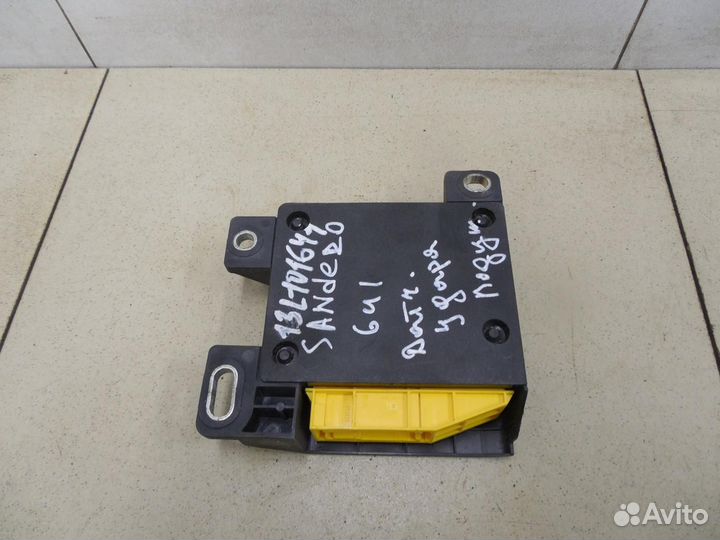 13L101641
SANdeRO
641
Датч.
удара
подуш.
Avito